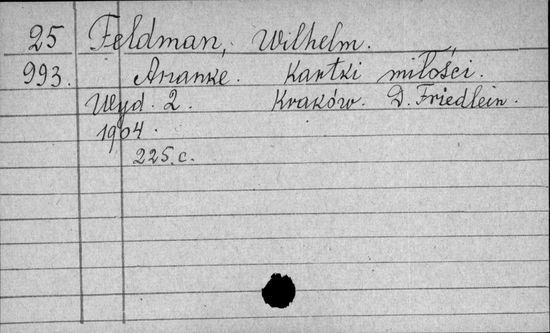 25 Feldman, Wilhelm.
993. Ananke. Kartki miłości.
Wyd. 2. Kraków. D. Friedlein.
1904.
225.c.